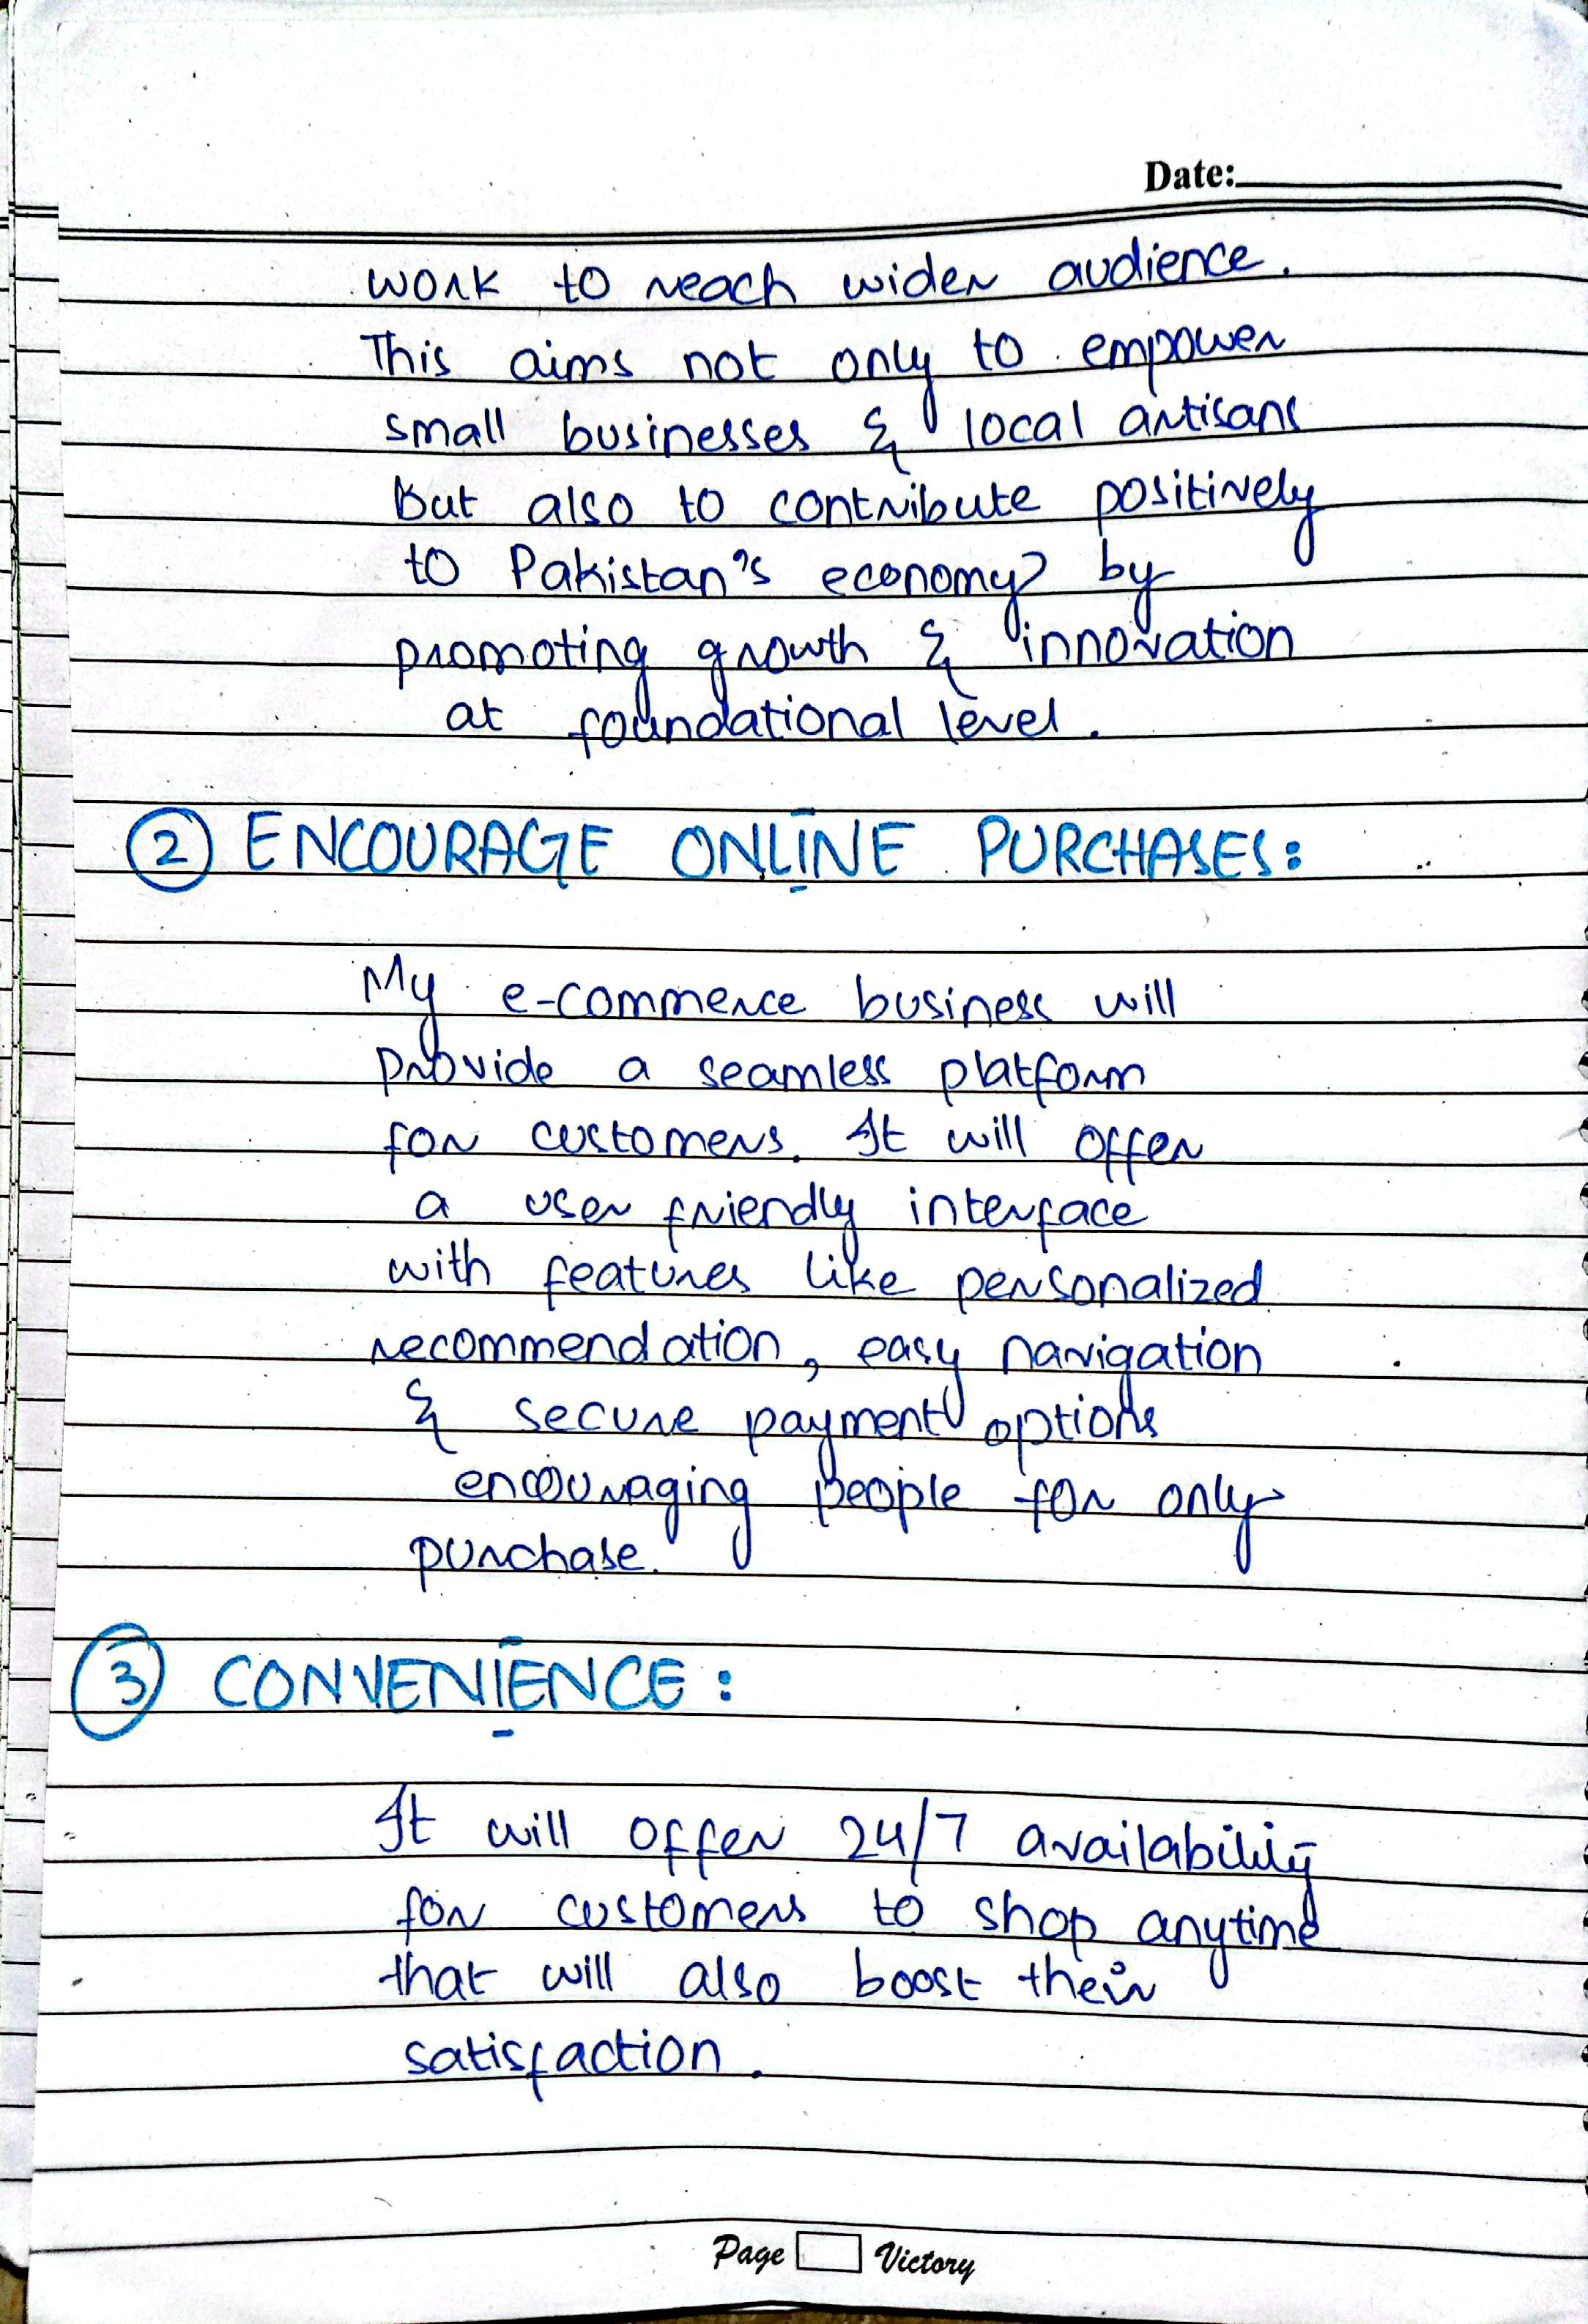 Date:
work to reach wider audience.
This aims not only to empower
small businesses & local artisans
but also to contribute positively
to Pakistan's economy by
promoting growth & innovation
at foundational level.
② ENCOURAGE ONLINE PURCHASES:
My e-commerce business will
provide a seamless platform
for customers. It will offer
a user friendly interface
with features like personalized
recommendation, easy navigation
& secure payment options
encouraging people for only
purchase.
③ CONVENIENCE:
It will offer 24/7 availability
for customers to shop anytime
that will also boost their
satisfaction.
Page Victory